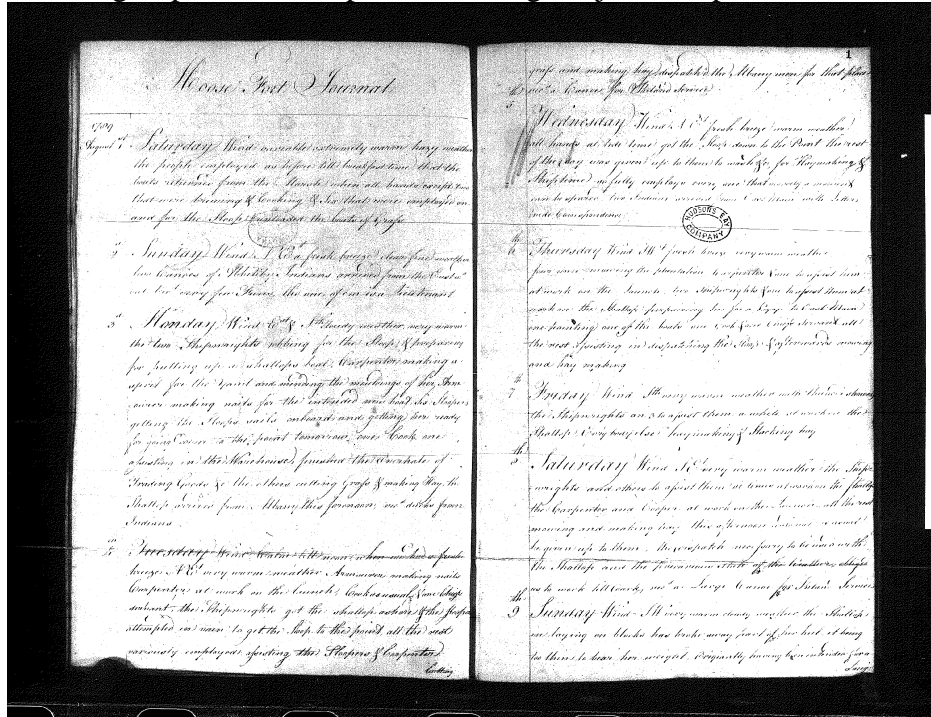 Moose Fort Journal
1789
August 1st Saturday Wind variable extremely warm hazy weather
the people employed as before till breakfast time that the
boats returned from the Marsh when all hands except two
that were brewing & Cooking & Six that were employed on
and for the Sloop unloaded the boats of Grass
2d Sunday Wind N Ed a fresh breeze clear fine weather
two Canoes of Indians arrived from the
very few Furs, the one of em is a Lieutenant
3d Monday Wind Et & Nth Cloudy weather, very warm
the two Shipwrights for the Sloop & preparing
for hulling up a Shallops boat, Carpenter making a
for the and mending the of her, Arm
ourer making nails for the intended new boat, Six Sloopers
getting the Sloops sails onboard and getting her ready
for going down to the point tomorrow, one Cook one
assisting in the Warehouse, finished the of
Trading Goods & the others cutting Grass & making Hay, the
Shallop arrived from Albany this forenoon, recd ditto from
Indians
4th Tuesday Wind till noon when we had a fresh
breeze N E very warm weather Armourer making nails
Carpenter at work on the launch, Cook as usual, & one
servant, the Shipwrights got the shallop ashore & the Sloopers
attempted in vain to get the Sloop to the point all the rest
variously employed assisting the Sloopers & Carpenter
Cutting
1
grass and making hay, dispatched the Albany men for that place
a Canoe for Inland Service
5th Wednesday Wind N Ed fresh breeze warm weather
all hands at tide time got the Sloop down to the Point the rest
of the day was given up to them to wash &c, for Haymaking &
Sloop time so fully employs every one that scarcely a moment
can be spared. two Indians arrived from East Main with Letters
Correspondence
HUDSON'S BAY
COMPANY
6th Thursday Wind SWt fresh breeze very warm weather
four men mowing the plantation Carpenter & one to assist him
at work on the Launch, two Shipwrights & one to assist them at
work on the Shallop preparing her for a Trip to East Main
one hauling one of the boats one Cook & one servant all
the rest assisting in dispatching the Sloop & afterwards mowing
and hay making
7th Friday Wind Sth very warm weather with showers
the Shipwrights and to assist them a while at work on the
Shallop Every body else haymaking & Stacking hay
8th Saturday Wind N E very warm weather the Ship
wrights and others to assist them at times at work on the Shallop
the Carpenter and Cooper at work on the Launch all the rest
mowing and making hay this afternoon instead as usual
be given up to them, the dispatch necessary to be used with
the Shallop and the state of the weather obliges
us to work till Dark, recd a Large Canoe for Inland Service
9th Sunday Wind SW very warm cloudy weather the Shallop
in laying on blocks has broke away part of her keel it being
too thin to bear her weight. Originally having been intended for a
Large